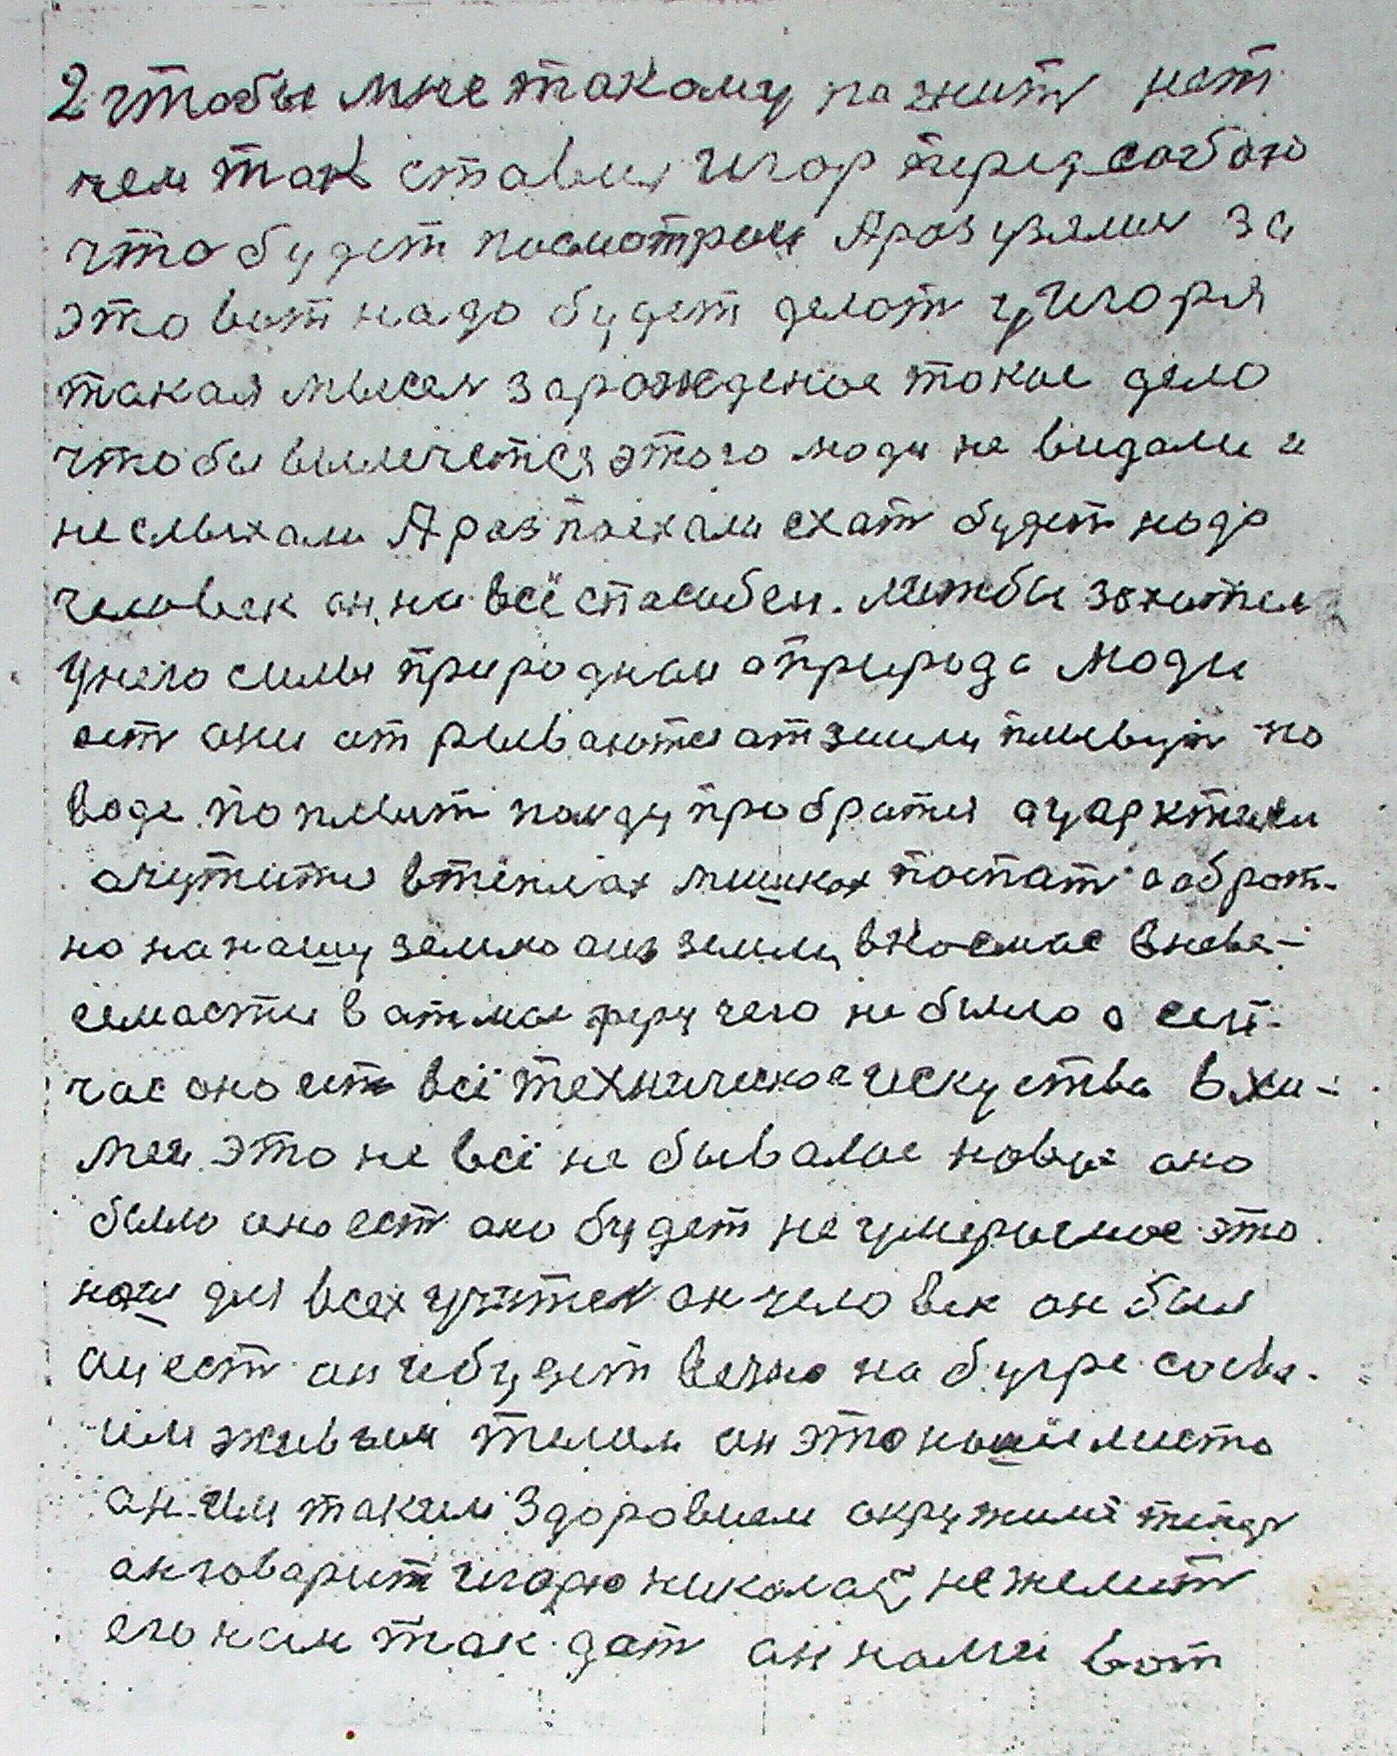 2 чтобы мне такому пажить нет
чем так ставил Игор перед сабою
что будет посмотрем А раз узялис за
это вот надо будет делат у Игоря
такая мысел зарожденое токое дело
чтобы вылечется этого люди не видали и
неслыхали А раз поехали ехат будет надо
человек он на всё спасобен. лижбы захотел
унего силы природнаи а природа люди
ест они от рываются от земли плывут по
воде поплыт паиду пробратся
очутитя в тёплах мешках поспат а обрат-
но на нашу землю аиз земли вкосмас вневе-
семасти в атмасферу чего не было а сей-
час оно ест всё техническое искуства в хи-
мии это не всё не бывалое новое оно
было оно ест оно будет не умераемое это
наш для всех учител он человек он был
он ест он и будет вечно на бугре сосва-
им живым телом он это нашё место
он им таким здоровием окружил
он говарит Игорю николай не желит
его нам так дат он нами вот